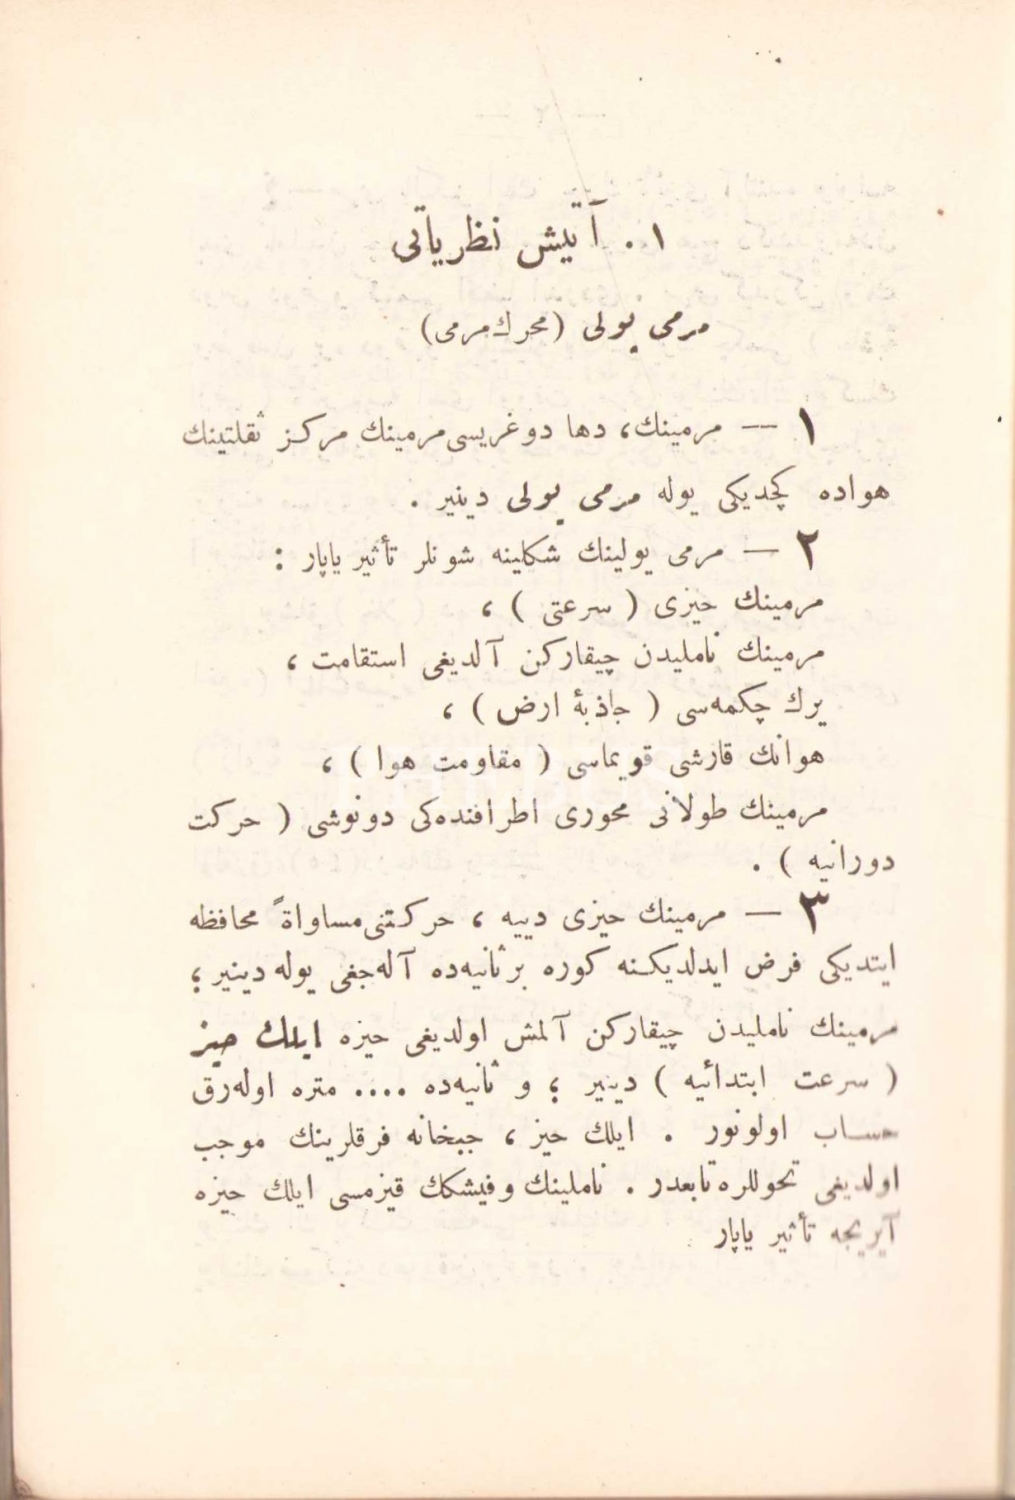 ١. آتيش نظرياتی
مرمی يولی (محرك مرمی)
١ — مرمينك، دها دوغريسی مرمينك مركز ثقلتينك
هواده كچديكی يوله مرمی يولی دينير .
٢ — مرمی يولينك شكلينه شونلر تأثير ياپار :
مرمينك حيزی ( سرعتی ) ،
مرمينك نامليدن چيقاركن آلديغی استقامت ،
يرك چكمه‌سی ( جاذبهٔ ارض ) ،
هوانك قارشی قويماسی ( مقاومت هوا ) ،
مرمينك طولانی محوری اطرافنده‌كی دونوشی ( حركت
دورانيه ) .
٣ — مرمينك حيزی دييه ، حركتنی مساواةً محافظه
ايتديكی فرض ايدلديكنه كوره بر ثانيه‌ده آله‌جغی يوله دينير ؛
مرمينك نامليدن چيقاركن آلمش اولديغی حيزه ايلك حيز
( سرعت ابتدائيه ) دينير ؛ و ثانيه‌ده .... متره اوله‌رق
حساب اولونور . ايلك حيز ، جبخانه فرقلرينك موجب
اولديغی تحوللره تابعدر . ناملينك و فيشكك قيزمسی ايلك حيزه
آيريجه تأثير ياپار